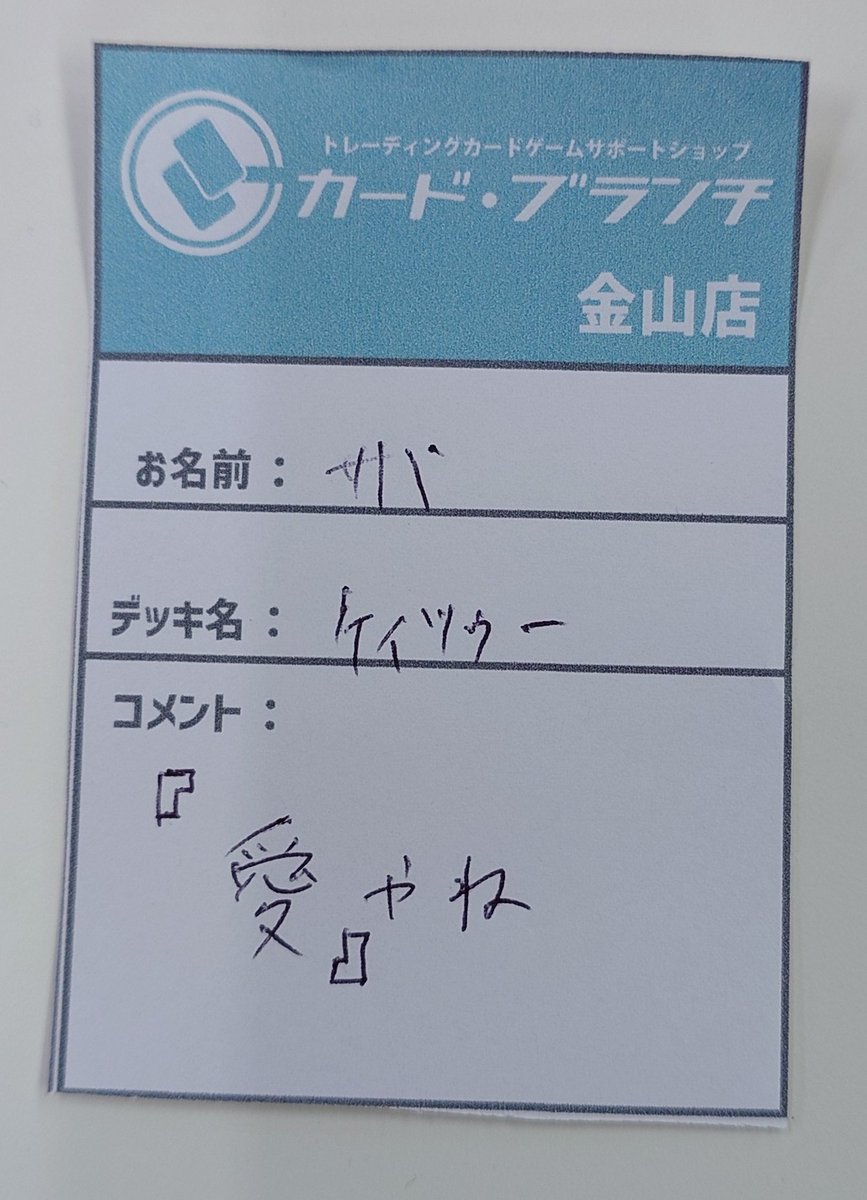 トレーディングカードゲームサポートショップ
カード・ブランチ
金山店
お名前： サバ
デッキ名： ケイツゥー
コメント：
『愛』やね